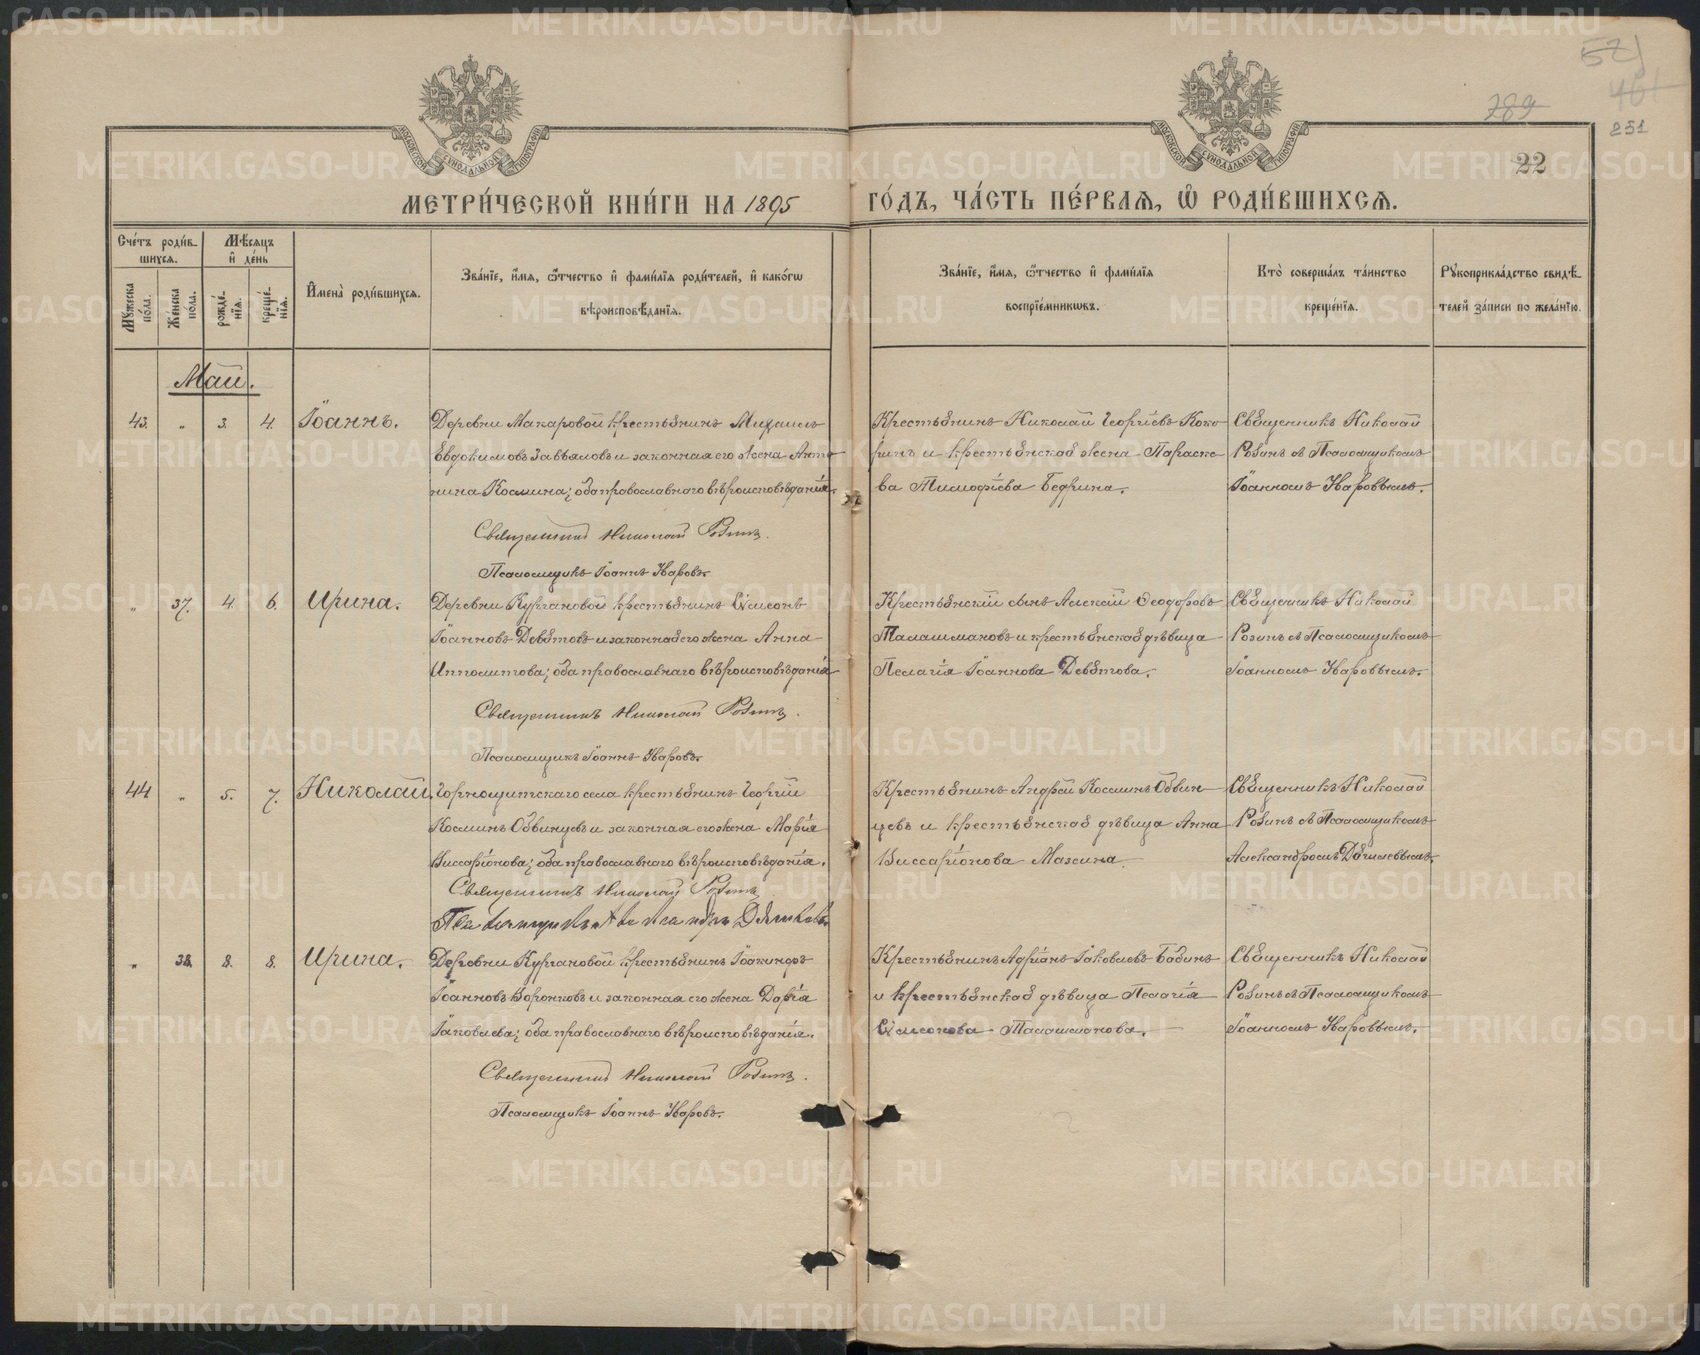 521
461
789
251
22
МОСКОВСКОЙ СѴНОДАЛЬНОЙ ТИПОГРАФІИ
МОСКОВСКОЙ СѴНОДАЛЬНОЙ ТИПОГРАФІИ
МЕТРИ́ЧЕСКОЙ КНИ́ГИ НА 1895 ГО́ДЪ, ЧА́СТЬ ПЕ́РВАѦ, Ѽ РОДИ́ВШИХСѦ.
Сче́тъ роди́вшихсѧ.
Мꙋ́жеска по́ла.
Же́нска по́ла.
Мѣ́сѧцъ и҆ де́нь
рожде́нїѧ.
креще́нїѧ.
И҆мена̀ роди́вшихсѧ.
Зва́нїе, и҆́мѧ, ѻ҆́тчество и҆ фами́лїѧ роди́телей, и҆ како́гѡ
вѣроисповѣ́данїѧ.
Зва́нїе, и҆́мѧ, ѻ҆́тчество и҆ фами́лїѧ
воспрїе́мникѡвъ.
Кто̀ соверша́лъ та́инство
креще́нїѧ.
Рꙋкоприкла́дство свидѣ́телей за́писи по жела́нїю.
Май.
43. „ 3. 4. Іоаннъ.
Деревни Макаровой крестьянинъ Михаилъ
Евдокимовъ Завьяловъ и законная его жена Анто-
нина Космина; оба православнаго вѣроисповѣданія.
Священникъ Николай Розинъ.
Псаломщикъ Іоаннъ Уваровъ.
Крестьянинъ Николай Георгіевъ Коко-
ринъ и крестьянская жена Параске-
ва Тимофіева Бедрина.
Священникъ Николай
Розинъ съ Псаломщикомъ
Іоанномъ Уваровымъ.
„ 37. 4. 6. Ирина.
Деревни Кургановой крестьянинъ Симеонъ
Іоанновъ Девятовъ и законная его жена Анна
Ипполитова; оба православнаго вѣроисповѣданія
Священникъ Николай Розинъ.
Псаломщикъ Іоаннъ Уваровъ.
Крестьянскій сынъ Алексій Ѳеодоровъ
Талашмановъ и крестьянская дѣвица
Пелагія Іоаннова Девятова.
Священникъ Николай
Розинъ съ Псаломщикомъ
Іоанномъ Уваровымъ.
44 „ 5. 7. Николай.
Горнощитскаго села крестьянинъ Георгій
Косминъ Обвинцевъ и законная его жена Марія
Виссаріонова; оба православнаго вѣроисповѣданія.
Священникъ Николай Розинъ
Псаломщикъ Александръ
Крестьянинъ Андрей Косминъ Обвин-
цевъ и крестьянская дѣвица Анна
Виссаріонова Мажина
Священникъ Николай
Розинъ съ Псаломщикомъ
Александромъ
„ 38. 8. 8. Ирина.
Деревни Кургановой крестьянинъ Іоакинфъ
Іоанновъ Воронковъ и законная его жена Дарія
Іаковлева; оба православнаго вѣроисповѣданія.
Священникъ Николай Розинъ.
Псаломщикъ Іоаннъ Уваровъ.
Крестьянинъ Адріанъ Іаковлевъ Бабинъ
и крестьянская дѣвица Пелагія
Симеонова Талашманова.
Священникъ Николай
Розинъ съ Псаломщикомъ
Іоанномъ Уваровымъ.
METRIKI.GASO-URAL.RU